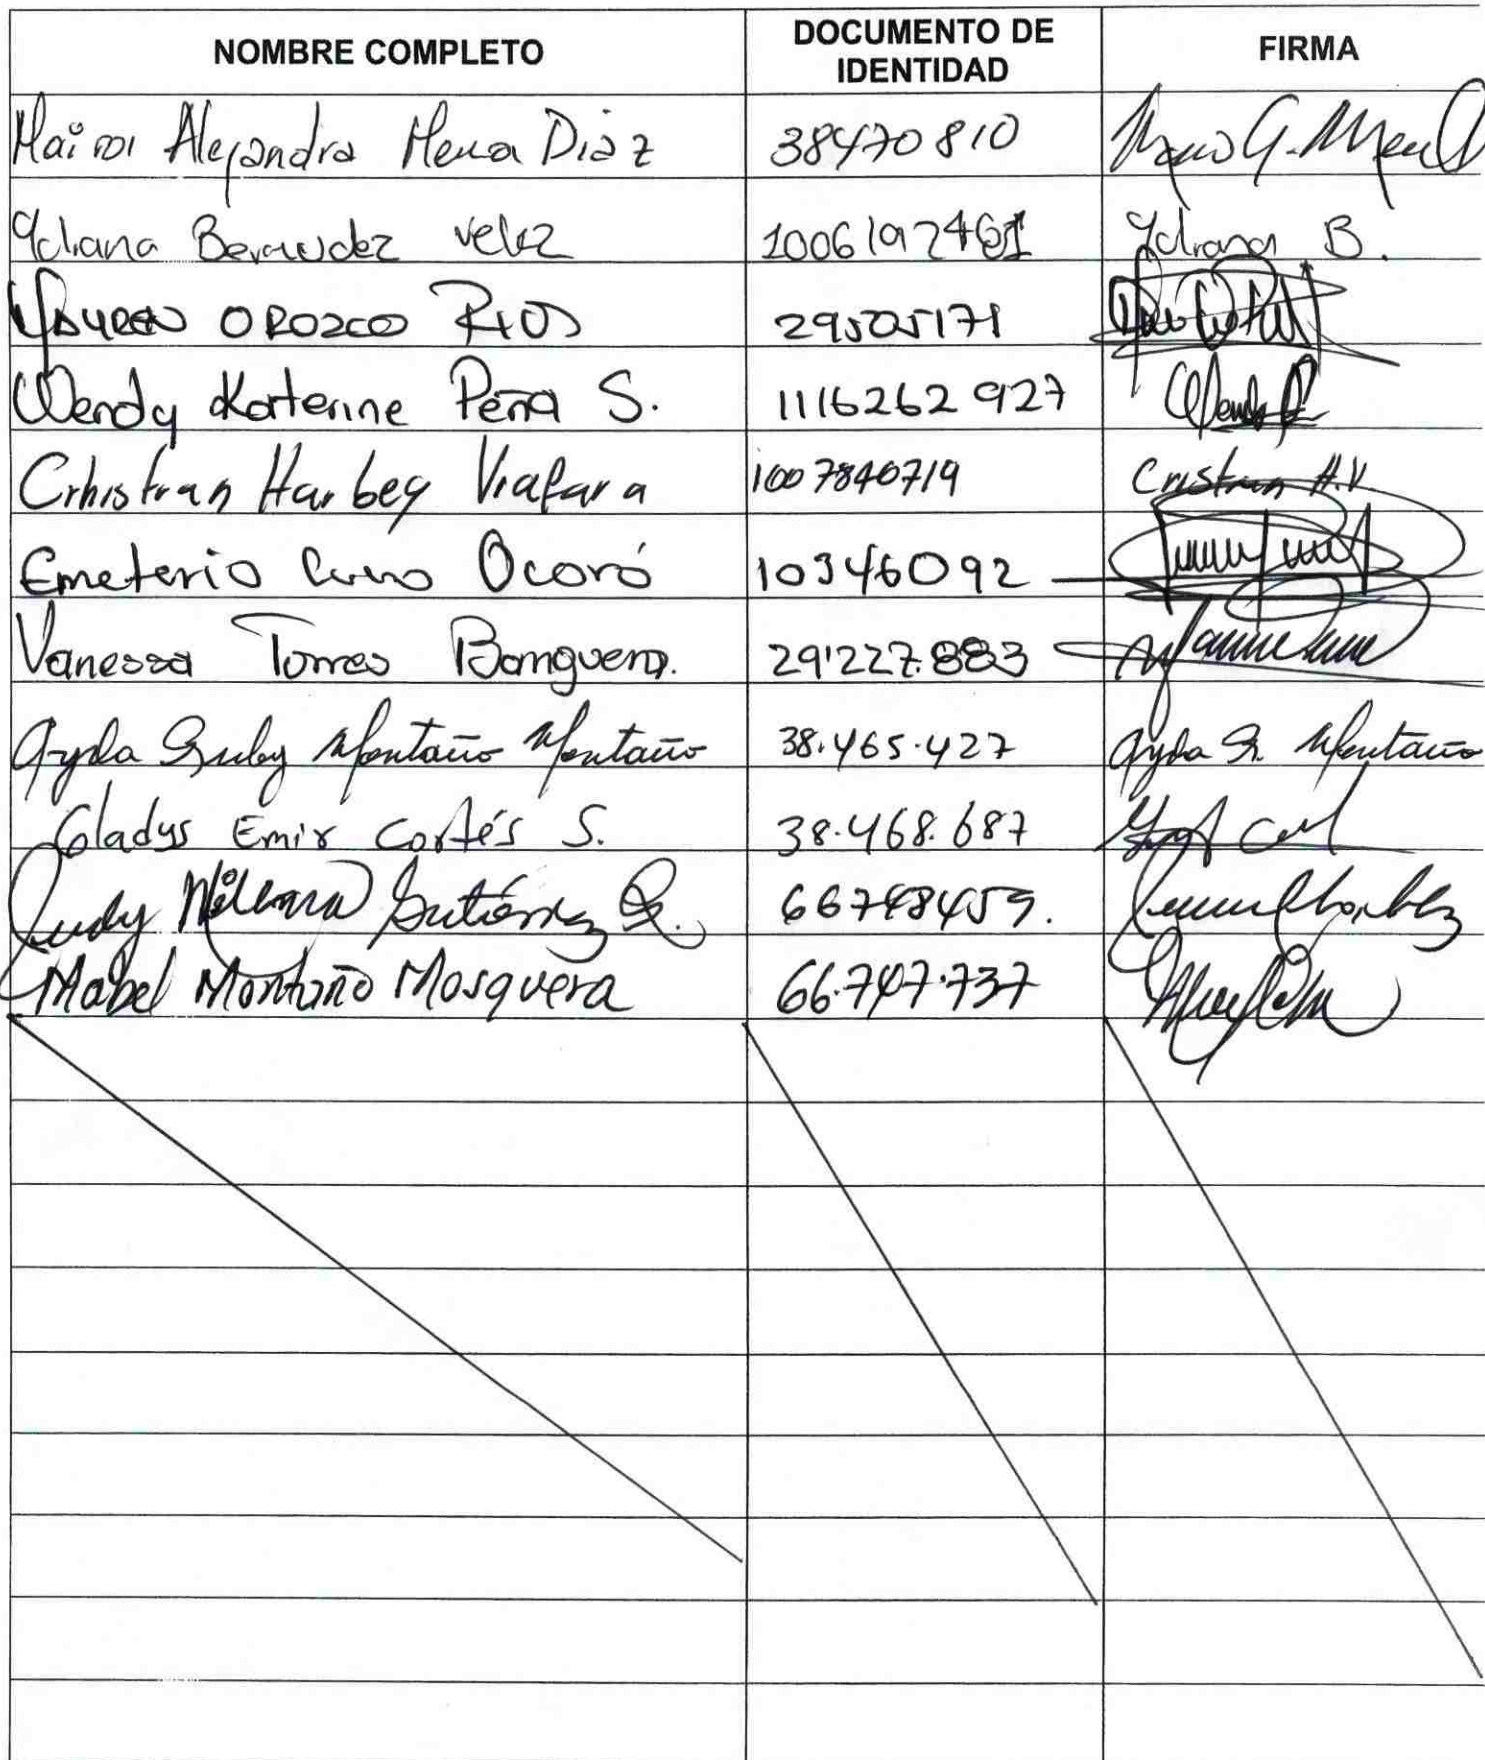 NOMBRE COMPLETO DOCUMENTO DE IDENTIDAD FIRMA
Alejandra Mena Diaz 38470810
Yuliana Bermudez Velez 1006192461 Yuliana B.
OROZCO RIOS 29505171
Wendy Katerine Peña S. 1116262927
Crhistian Harbey Viafara 1007840719 Cristian H.V.
Emeterio Ocoró 10346092
Vanessa Torres Banguera. 29'227.883
Ayda Ruby Montaño Montaño 38.465.427 Ayda R. Montaño
Gladys Emir Cortés S. 38.468.687
Milena Gutiérrez 66748459.
Mabel Montaño Mosquera 66.747.737